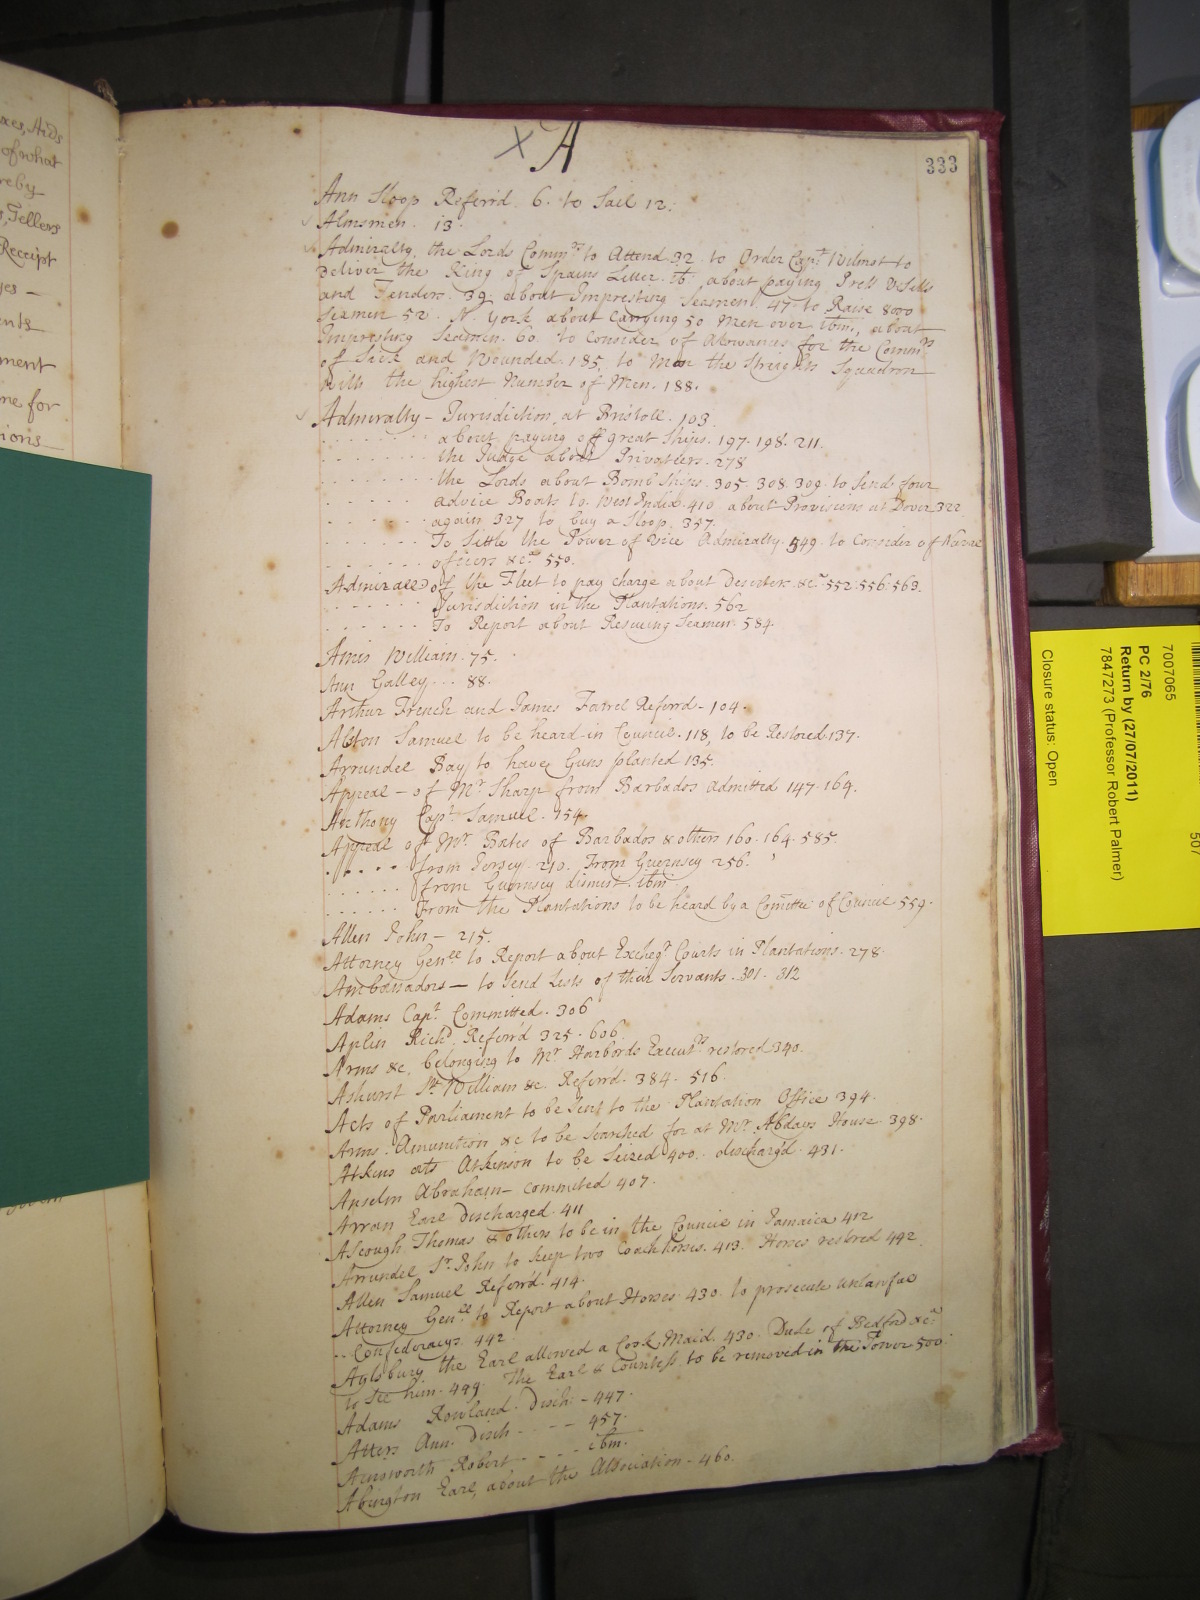 xes, Aids
of what
reby
s, Tellers
Receipt
yes —
ents
ment
me for
ions
× A
333
Ann Sloop Referrd 6. to Sail 12.
Almsmen. 13.
Admiralty, the Lords Commrs to Attend 32. to Order Capt Wilmot to
Deliver the King of Spains Letter. ib. about paying Prest Vessells
and Tenders. 39. about Impresting Seamen. 47. to Raise 8000
Seamen 52. N. York about Carrying 50 Men over ibm., about
Impresting Seamen. 60. to Consider of Allowances for the Commrs
of Sick and Wounded. 185. to Man the Streights Squadron
with the highest Number of Men. 188.
Admiralty — Jurisdiction at Bristoll. 103.
about paying off great Ships. 197. 198. 211.
the Judge about Privateers. 278
the Lords about Bomb Ships. 305. 308. 309. to Send four
advice Boats to West Indie. 410 about Provisions at Dover 322.
again 327 to buy a Sloop. 357.
To Settle the Power of Vice Admiralty. 549. to Consider of Naval
officers &ca 550.
Admirall of the Fleet to pay charge about Deserters &ca 552. 556. 563.
Jurisdiction in the Plantations. 562
To Report about Rescuing Seamen. 584.
Amis William. 75.
Ann Galley ... 88.
Arthur French and James Farrel Referrd - 104.
Alston Samuel to be heard in Council. 118, to be Restored 137.
Arrundel Bay to have Guns planted 135.
Appeal — of Mr Sharp from Barbados admitted 147. 164.
Anthony Capt Samuel. 154.
Appeal of Mr Bates of Barbados & others 160. 164. 585.
from Jersey. 210. From Guernsey 256.
from Guernsey dismist. ibm
From the Plantations to be heard by a Comittee of Council 559.
Allen John — 215.
Attorney Genll to Report about Excheqr Courts in Plantations. 278.
Ambassadors — to Send Lists of their Servants. 301. 312
Adams Capt Committed. 306
Aplin Richd Referr'd 325. 606.
Arms &c. belonging to Mr Harbords Executrs restored 340.
Ashurst Sr William &c. Referrd. 384. 516.
Acts of Parliament to be Sent to the Plantation Office 394.
Arms Amunition &c to be Searched for at Mr Abdays House 398.
Atkins als Atkinson to be Seized 400. discharg'd. 431.
Anselm Abraham — commited 407.
Arran Earl Discharged. 411
Ascough Thomas & others to be in the Council in Jamaica 412
Arrundel Sr John to keep two Coach horses. 413. Horses restored 442.
Allen Samuel Referr'd. 414.
Attorney Genll to Report about Horses 430. to prosecute unlawful
Confederacys. 442
Aylsbury the Earl allowed a Cook Maid. 430. Duke of Bedford &ca
to see him. 499. The Earl & Countess to be removed in the Tower 500.
Adams Rowland. Disch. - 447.
Atters Ann. Disch - - - 457.
Ainsworth Robert - - - ibm.
Abington Earl, about the Association - 460.
7007065
PC 2/76
Return by (27/07/2011)
7847273 (Professor Robert Palmer)
Closure status: Open